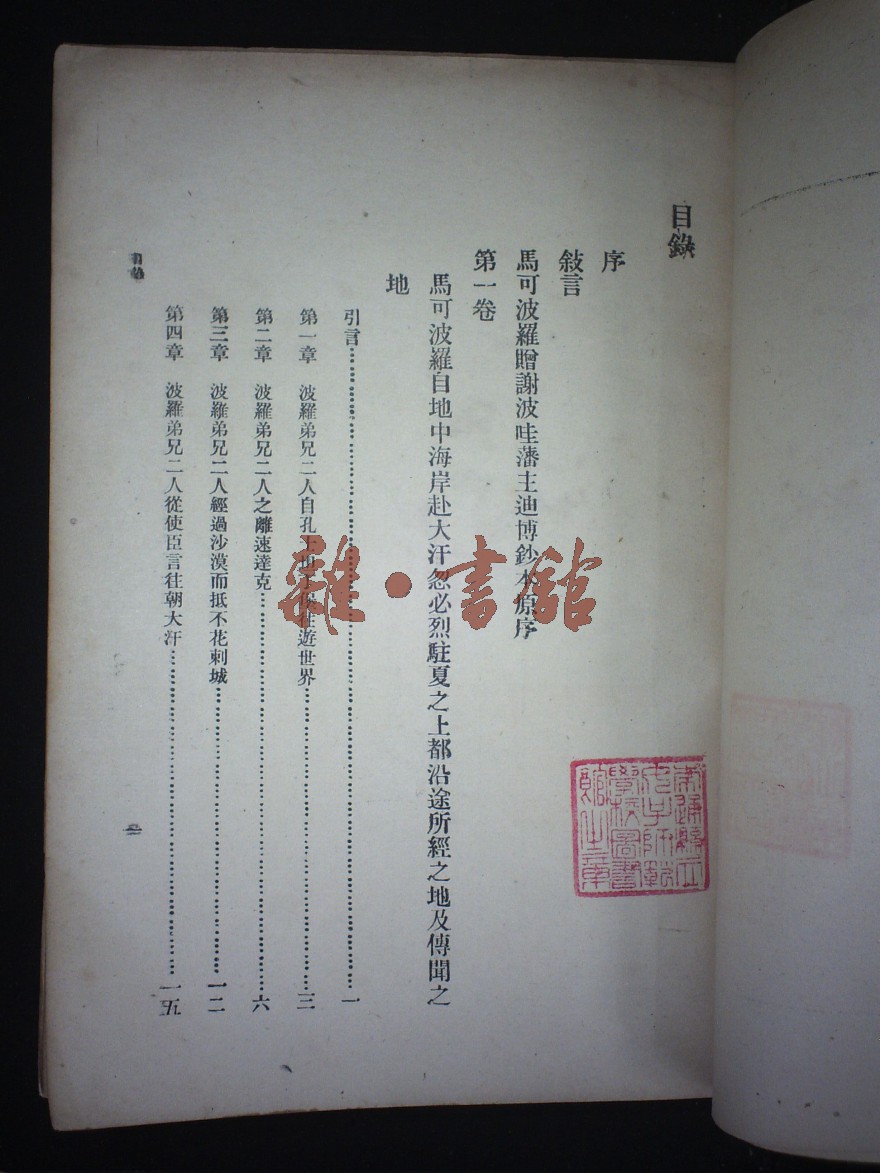 目錄
序
敍言
馬可波羅贈謝波哇藩主迪博鈔本原序
第一卷
馬可波羅自地中海岸赴大汗忽必烈駐夏之上都沿途所經之地及傳聞之
地
引言……一
第一章 波羅弟兄二人自孔士坦丁堡往遊世界……三
第二章 波羅弟兄二人之離速達克……六
第三章 波羅弟兄二人經過沙漠而抵不花剌城……一二
第四章 波羅弟兄二人從使臣言往朝大汗……一五
目錄
一
雜·書館
南通縣立
女子師範
學校圖書
館之章